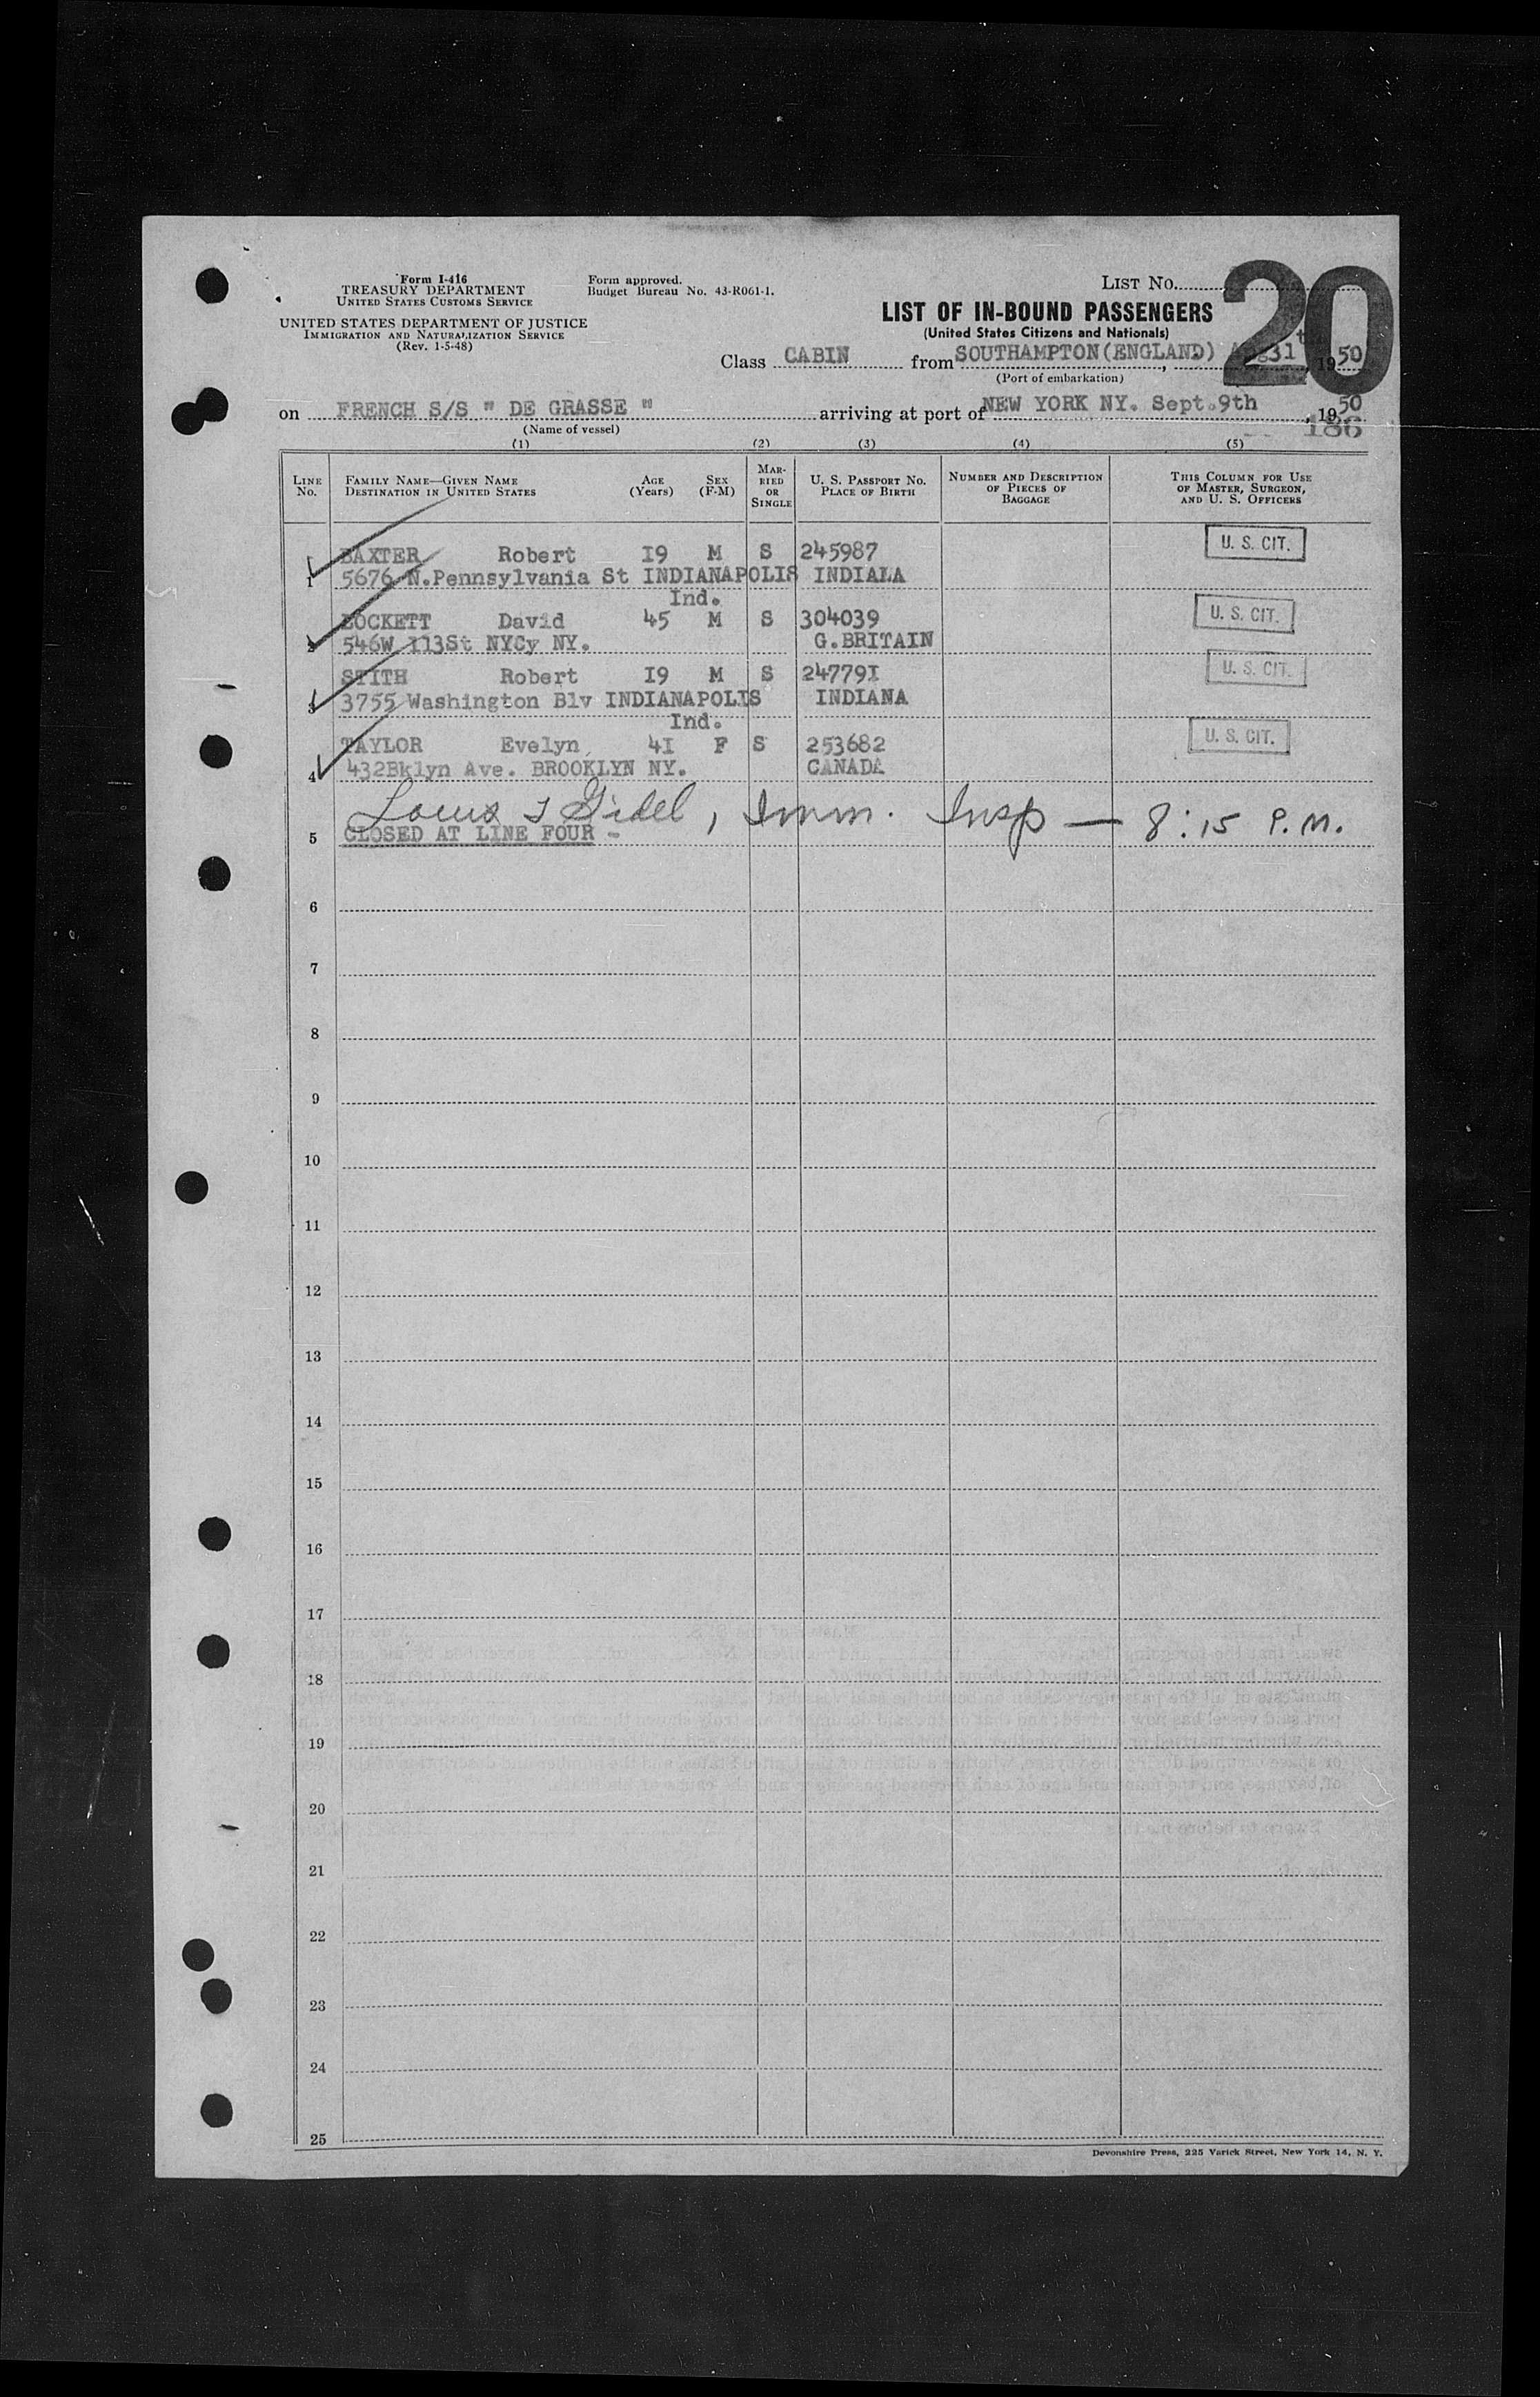 Form I-416
TREASURY DEPARTMENT
UNITED STATES CUSTOMS SERVICE
UNITED STATES DEPARTMENT OF JUSTICE
IMMIGRATION AND NATURALIZATION SERVICE
(Rev. 1-5-48)
Form approved.
Budget Bureau No. 43-R061-1.
LIST No. 20
LIST OF IN-BOUND PASSENGERS
(United States Citizens and Nationals)
Class CABIN from SOUTHAMPTON(ENGLAND), 31 , 1950
(Port of embarkation)
on FRENCH S/S " DE GRASSE " arriving at port of NEW YORK NY. Sept.9th, 1950
(Name of vessel)
186
(1) (2) (3) (4) (5)
LINE No. FAMILY NAME—GIVEN NAME DESTINATION IN UNITED STATES AGE (Years) SEX (F-M) MARRIED OR SINGLE U. S. PASSPORT No. PLACE OF BIRTH NUMBER AND DESCRIPTION OF PIECES OF BAGGAGE THIS COLUMN FOR USE OF MASTER, SURGEON, AND U. S. OFFICERS
BAXTER Robert I9 M S 245987 U. S. CIT.
1 5676 N.Pennsylvania St INDIANAPOLIS INDIALA
Ind.
David 45 M S 304039 U. S. CIT.
2 546W II3St NYCy NY. G.BRITAIN
STITH Robert I9 M S 24779I U. S. CIT.
3 3755 Washington Blv INDIANAPOLIS INDIANA
Ind.
TAYLOR Evelyn, 4I F S 253682 U. S. CIT.
4 432Bklyn Ave. BROOKLYN NY. CANADA
Louis , Imm. Insp — 8:15 P.M.
5 CLOSED AT LINE FOUR -
6
7
8
9
10
11
12
13
14
15
16
17
18
19
20
21
22
23
24
25
Devonshire Press, 225 Varick Street, New York 14, N. Y.